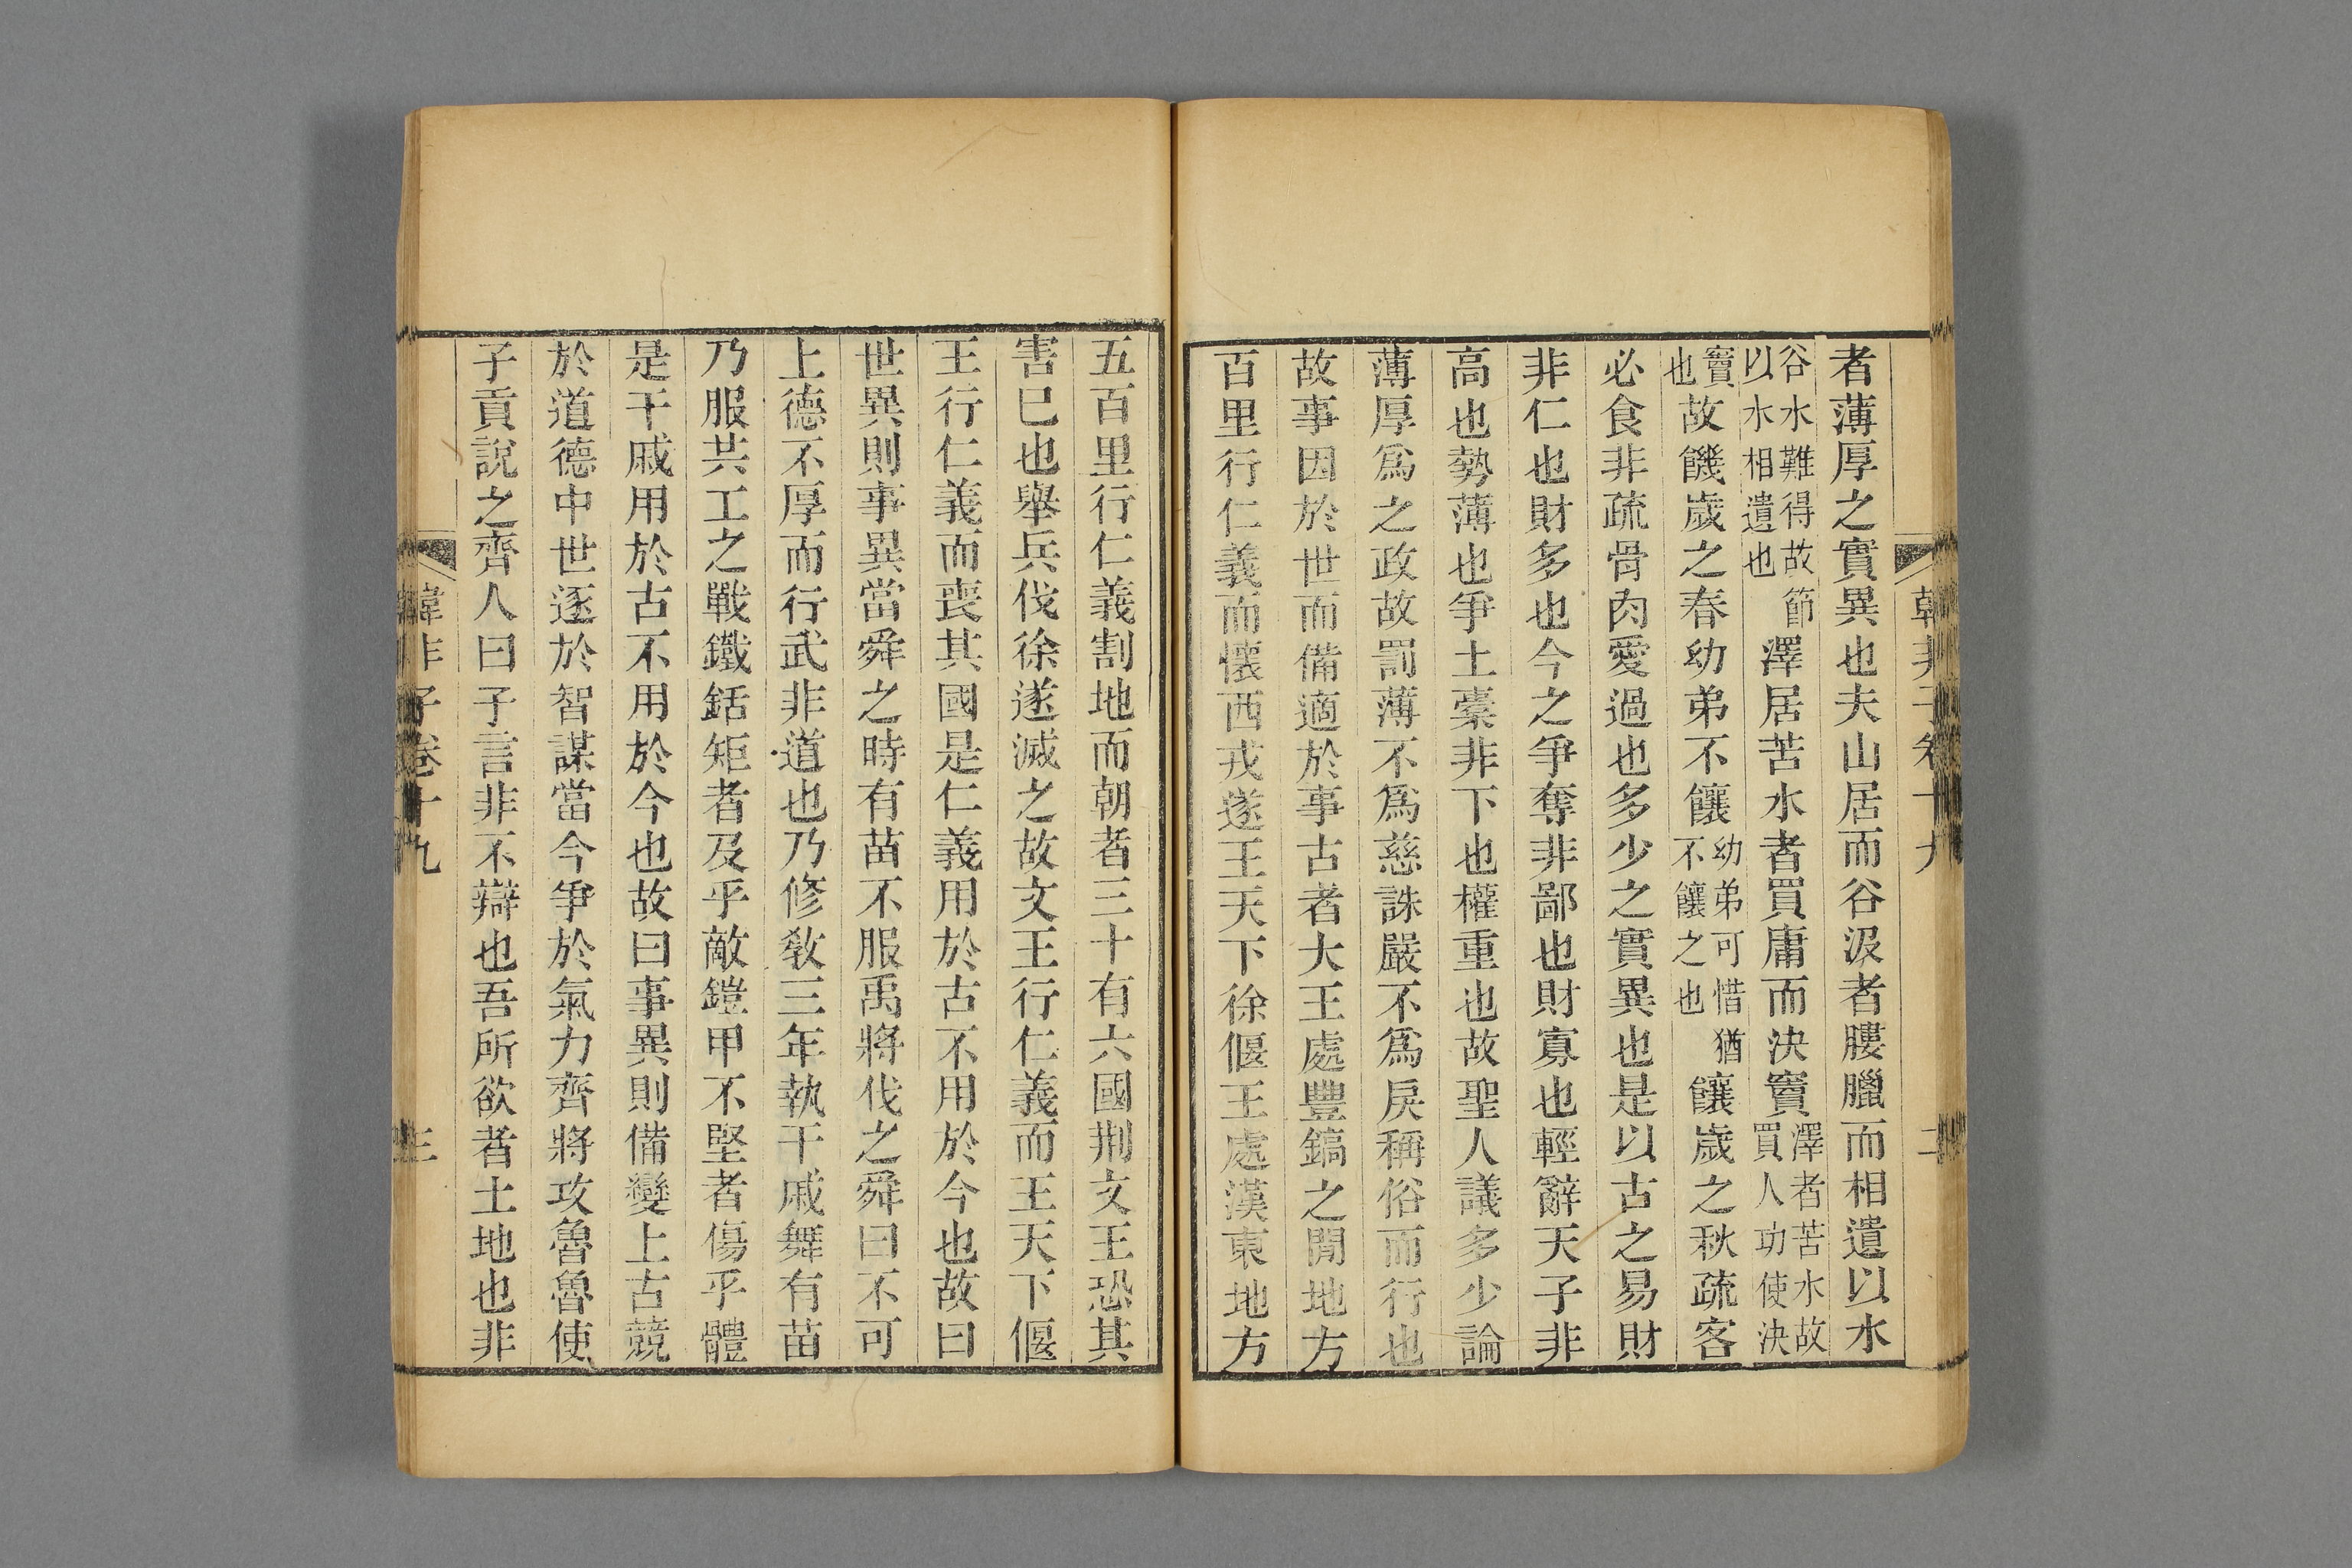 韓非子卷十九
二
者薄厚之實異也夫山居而谷汲者膢臘而相遺以水
谷水難得故節以水相遺也澤居苦水者買庸而決竇澤者苦水故買人功使決
竇也故饑歲之春幼弟不饟幼弟可惜猶不饟之也饟歲之秋疏客
必食非疏骨肉愛過也多少之實異也是以古之易財
非仁也財多也今之爭奪非鄙也財寡也輕辭天子非
高也勢薄也爭土橐非下也權重也故聖人議多少論
薄厚爲之政故罰薄不爲慈誅嚴不爲戾稱俗而行也
故事因於世而備適於事古者大王處豐鎬之閒地方
百里行仁義而懷西戎遂王天下徐偃王處漢東地方
五百里行仁義割地而朝者三十有六國荆文王恐其
害已也舉兵伐徐遂滅之故文王行仁義而王天下偃
王行仁義而喪其國是仁義用於古不用於今也故曰
世異則事異當舜之時有苗不服禹將伐之舜曰不可
上德不厚而行武非道也乃修敎三年執干戚舞有苗
乃服共工之戰鐵銛矩者及乎敵鎧甲不堅者傷乎體
是干戚用於古不用於今也故曰事異則備變上古競
於道德中世逐於智謀當今爭於氣力齊將攻魯魯使
子貢說之齊人曰子言非不辯也吾所欲者土地也非
韓非子卷十九
三